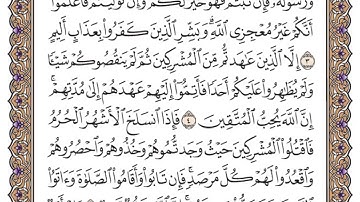 وَرَسُولُهُۥ ۚ فَإِن تُبْتُمْ فَهُوَ خَيْرٌ لَّكُمْ ۖ وَإِن تَوَلَّيْتُمْ فَٱعْلَمُوٓا۟
أَنَّكُمْ غَيْرُ مُعْجِزِى ٱللَّهِ ۗ وَبَشِّرِ ٱلَّذِينَ كَفَرُوا۟ بِعَذَابٍ أَلِيمٍ
٣ إِلَّا ٱلَّذِينَ عَٰهَدتُّم مِّنَ ٱلْمُشْرِكِينَ ثُمَّ لَمْ يَنقُصُوكُمْ شَيْـًٔا
وَلَمْ يُظَٰهِرُوا۟ عَلَيْكُمْ أَحَدًا فَأَتِمُّوٓا۟ إِلَيْهِمْ عَهْدَهُمْ إِلَىٰ مُدَّتِهِمْ ۚ
إِنَّ ٱللَّهَ يُحِبُّ ٱلْمُتَّقِينَ ٤ فَإِذَا ٱنسَلَخَ ٱلْأَشْهُرُ ٱلْحُرُمُ
فَٱقْتُلُوا۟ ٱلْمُشْرِكِينَ حَيْثُ وَجَدتُّمُوهُمْ وَخُذُوهُمْ وَٱحْصُرُوهُمْ
وَٱقْعُدُوا۟ لَهُمْ كُلَّ مَرْصَدٍ ۚ فَإِن تَابُوا۟ وَأَقَامُوا۟ ٱلصَّلَوٰةَ وَءَاتَوُا۟